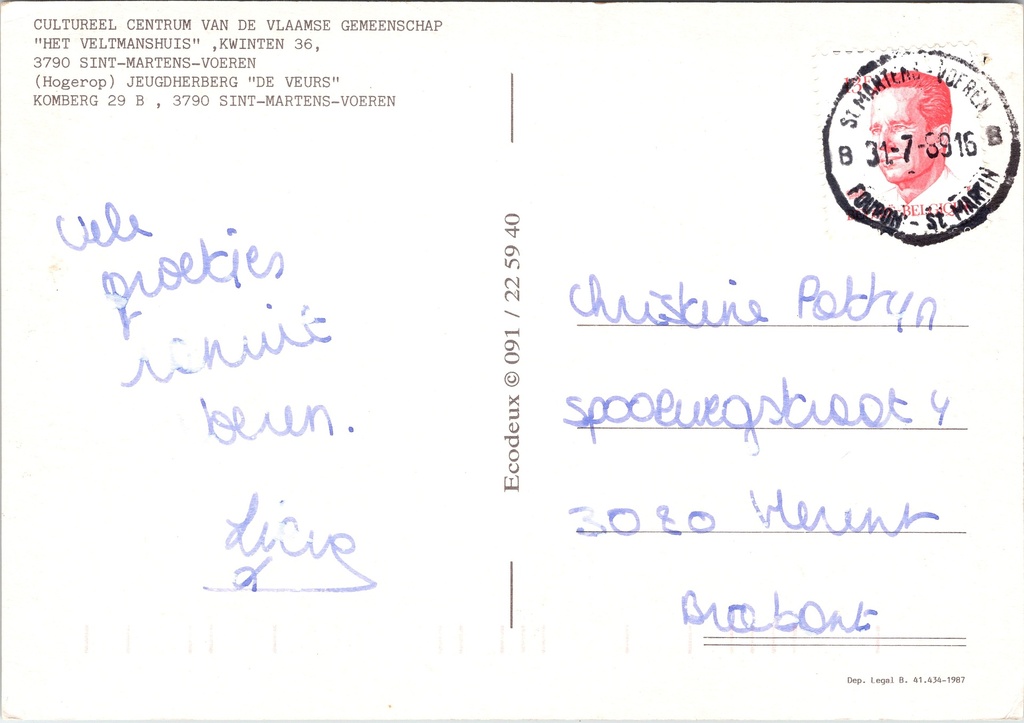 CULTUREEL CENTRUM VAN DE VLAAMSE GEMEENSCHAP
"HET VELTMANSHUIS" ,KWINTEN 36,
3790 SINT-MARTENS-VOEREN
(Hogerop) JEUGDHERBERG "DE VEURS"
KOMBERG 29 B , 3790 SINT-MARTENS-VOEREN
Vele
groetjes
vanuit
Voeren.
Ecodeux © 091 / 22 59 40
St MARTENS-VOEREN
B 31-7-89 16 B
FOURON-St MARTIN
BELGIQUE
Christine Pattyn
Spoorwegstraat 4
3020 Herent
Brabant
Dep. Legal B. 41.434-1987